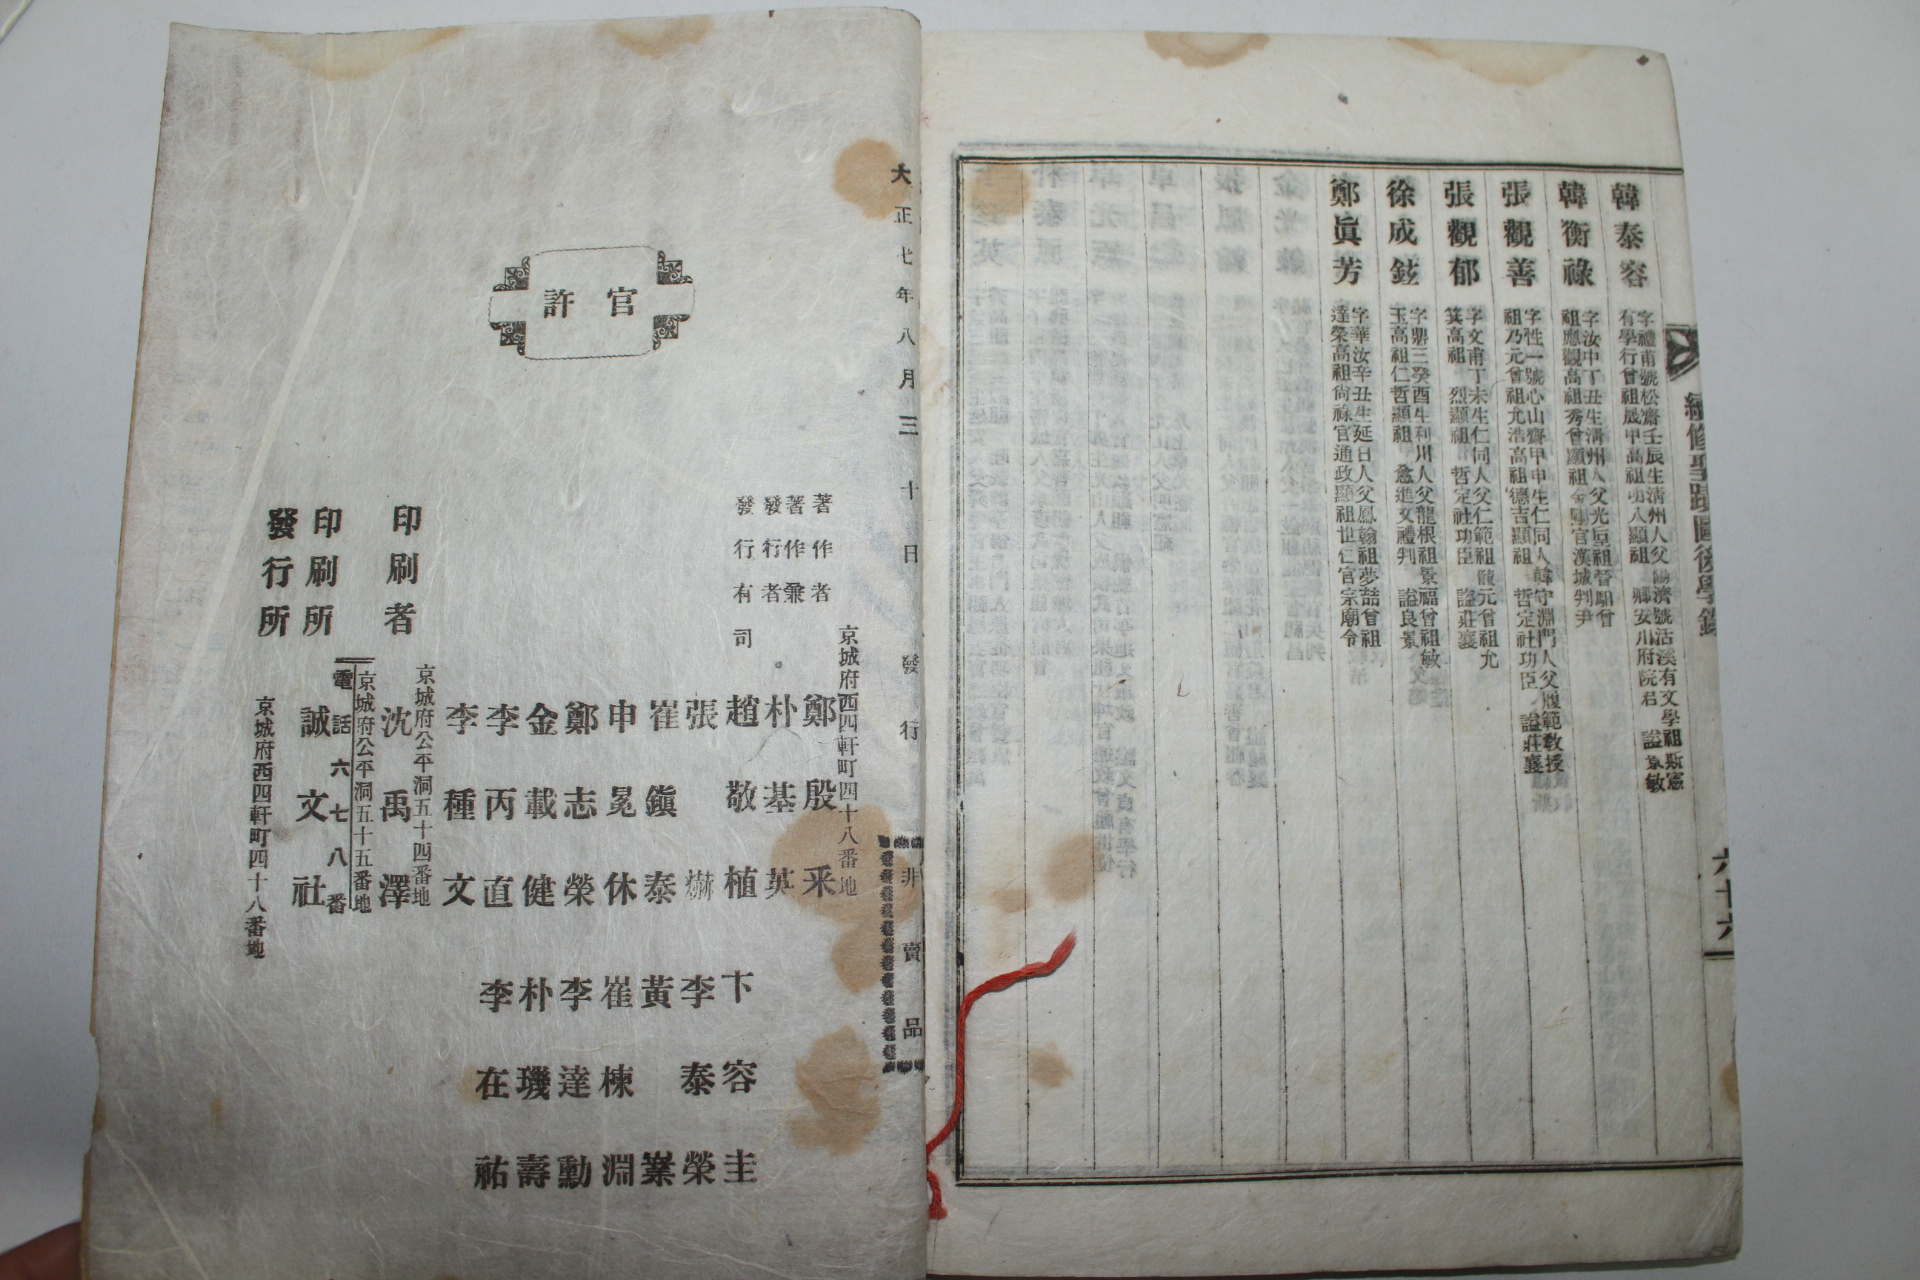 韓泰容
字禮甫號松齋壬辰生淸州人父
有學行曾祖晟甲高祖功八顯祖
濟號活溪有文學祖斯憲
卿安川府院君 諡景敏
韓衡祿
字汝中丁丑生淸州人父光亘祖晉昭曾
祖應觀高祖秀曾顯祖金剛官漢城判尹
張觀善
字性一號心山齋甲申生仁同人韓守淵門人父履範敎授
祖乃元曾祖尤浩高祖德吉顯祖 哲定社功臣 諡莊襄
張觀郁
字文甫丁未生仁同人父仁範祖龍元曾祖允
箕高祖 烈顯祖 哲定社功臣 諡莊襄
徐成鉉
字鼎三癸酉生利川人父龍根祖景福曾祖敏
玉高祖仁哲顯祖 愈進文禮判 諡良景
鄭眞芳
字華汝辛丑生延日人父鳳翰祖夢喆曾祖
達榮高祖尙祿官通政顯祖世仁官宗廟令
續修聖蹟圖後學錄
六十六
大正七年八月三十日發行
非賣品
官許
京城府西四軒町四十八番地
著作者 鄭殷采
著作兼
發行者 朴基英
發行有司 趙敬植
張
崔鎭泰
申冕休
鄭志榮
金載健
李丙直
李種文
卞容圭
李泰榮
黃 業
崔棟淵
李達勳
朴璣壽
李在祐
京城府公平洞五十四番地
印刷者 沈禹澤
京城府公平洞五十五番地
電話六七八番
印刷所 誠文社
京城府西四軒町四十八番地
發行所